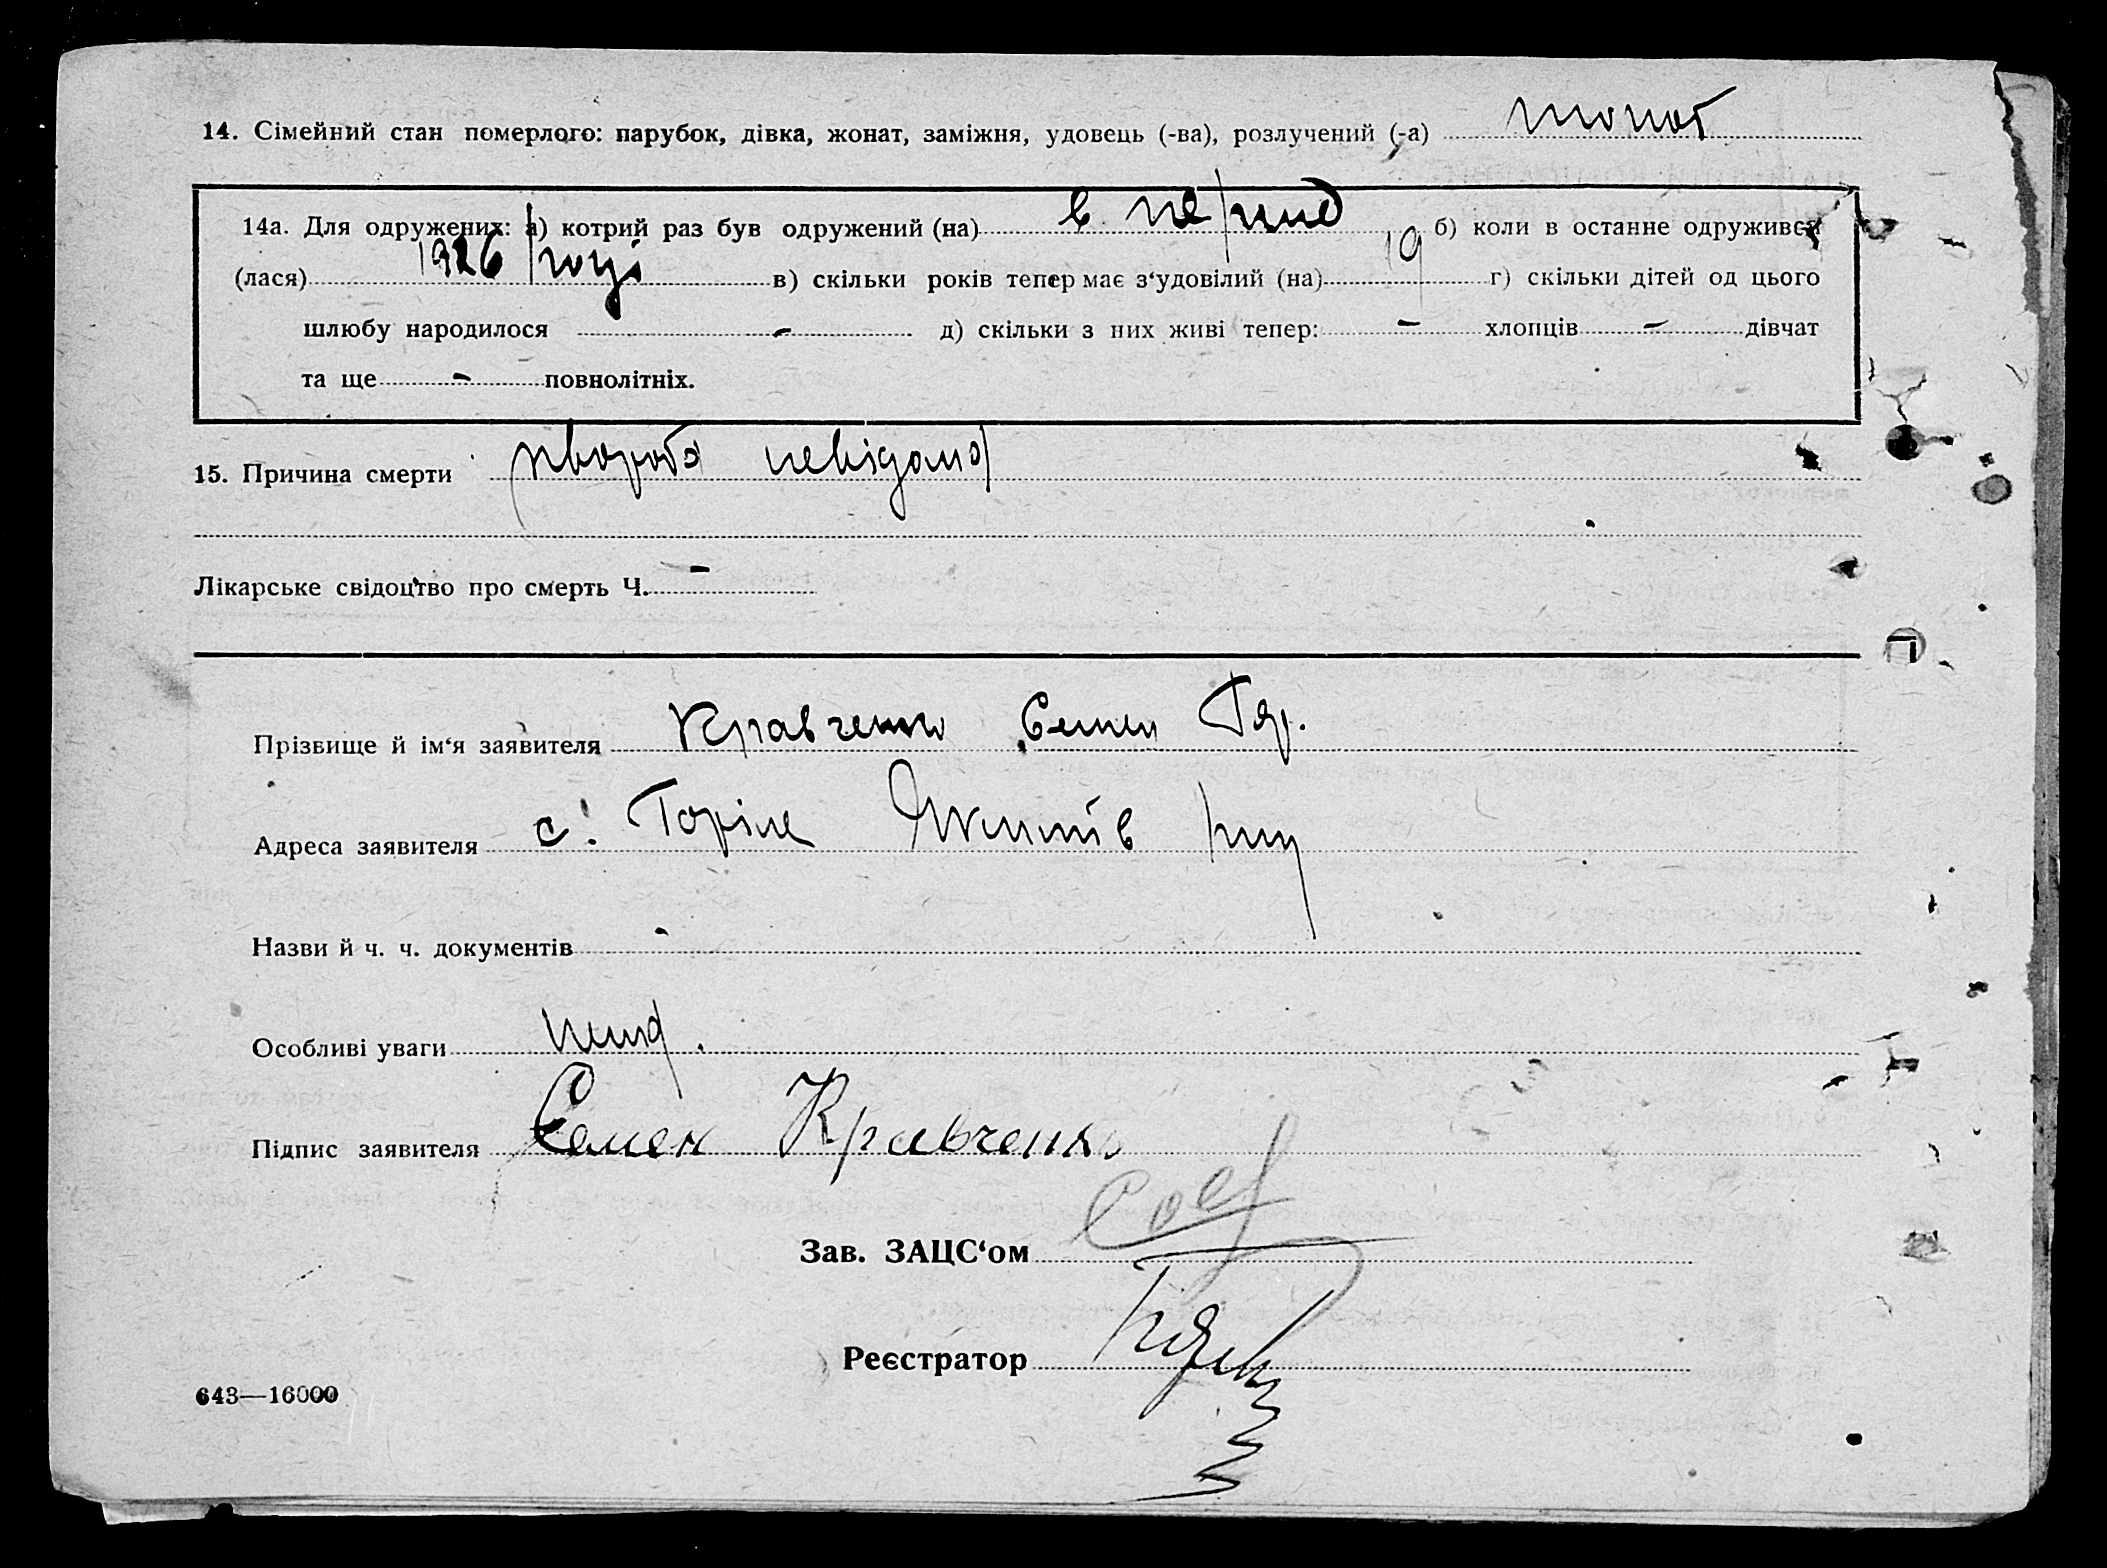 14. Сімейний стан померлого: парубок, дівка, жонат, заміжня, удовець (-ва), розлучений (-а) жонат
14а. Для одружених: а) котрий раз був одружений (на) в перший б) коли в останне одружився
(лася) 1926 році в) скільки років тепер має з‘удовілий (на) 19 г) скільки дітей од цього
шлюбу народилося - д) скільки з них живі тепер: - хлопців - дівчат
та ще - повнолітніх.
15. Причина смерти хвороба невідома
Лікарське свідоцтво про смерть Ч. -
Прізвище й ім‘я заявителя Кравченко Семен
Адреса заявителя с.
Назви й ч. ч. документів -
Особливі уваги
Підпис заявителя Семен Кравченко
Зав. ЗАЦС‘ом
Реєстратор
643—16000